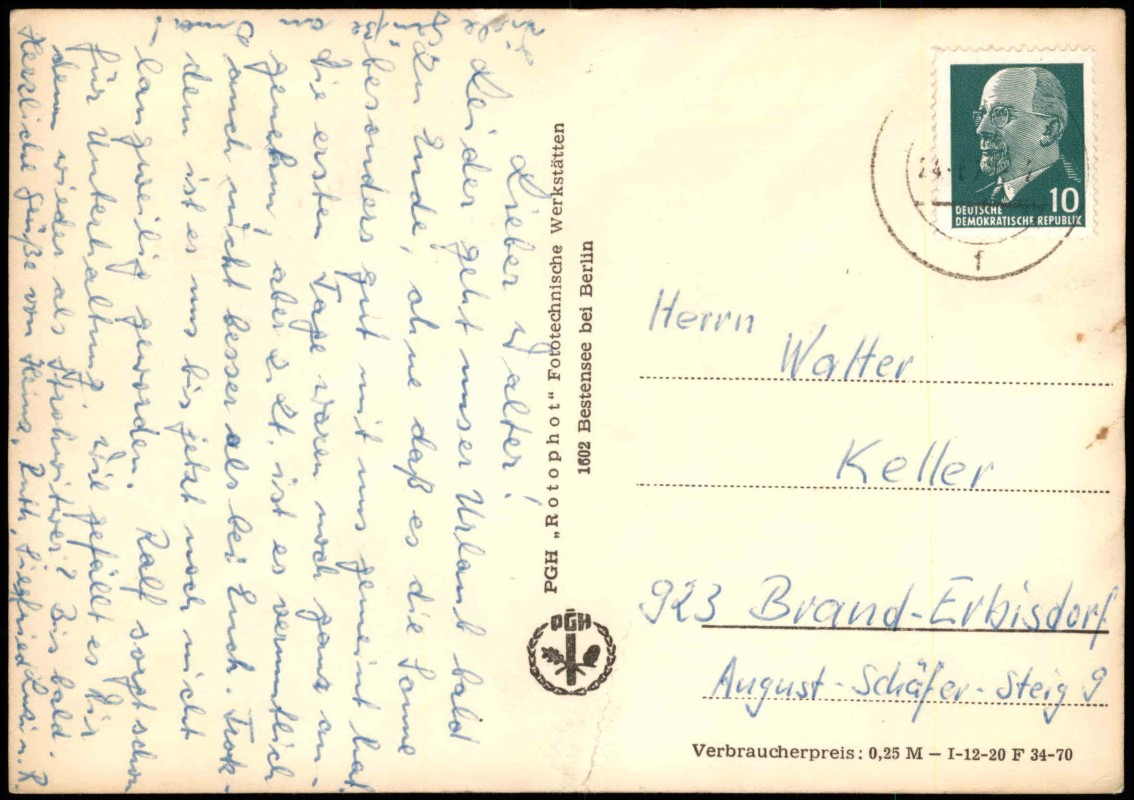 Lieber Walter!
Leider geht unser Urlaub bald
zu Ende, ohne daß es die Sonne
besonders gut mit uns gemeint hat.
die ersten Tage waren noch ganz an-
genehm, aber z. Zt. ist es vermutlich
auch nicht besser als bei Euch. Trotz-
dem ist es uns bis jetzt noch nicht
langweilig geworden. Ralf sorgt schon
für Unterhaltung. Wie gefällt es Dir
denn wieder als Strohwitwer? Bis bald.
Herzliche Grüße von Heinz, Ruth, Siegfried u. R.
PGH „Rotophot“ Fototechnische Werkstätten
1602 Bestensee bei Berlin
PGH
10
DEUTSCHE
DEMOKRATISCHE REPUBLIK
f
Herrn
Walter
Keller
923 Brand-Erbisdorf
August-Schäfer-Steig 9
Verbraucherpreis: 0,25 M – I-12-20 F 34-70